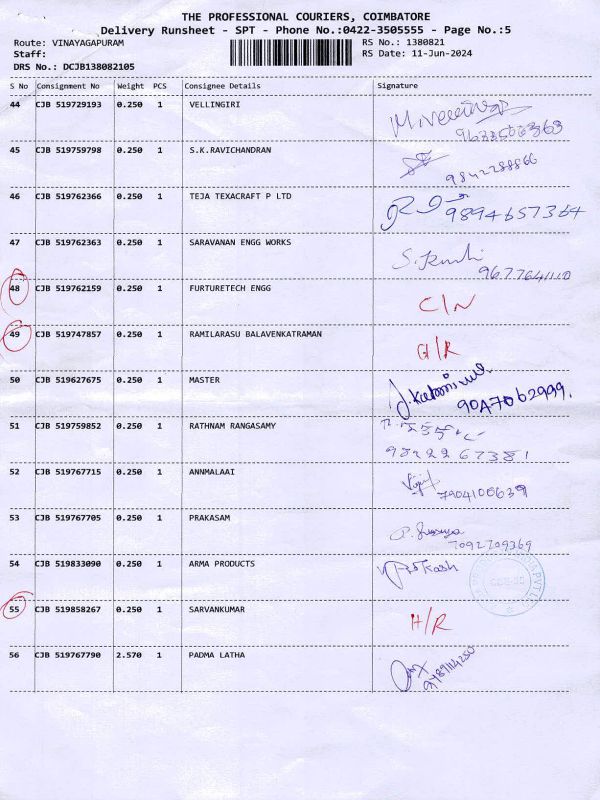 THE PROFESSIONAL COURIERS, COIMBATORE
Delivery Runsheet - SPT - Phone No.:0422-3505555 - Page No.:5
Route: VINAYAGAPURAM RS No.: 1380821
Staff: RS Date: 11-Jun-2024
DRS No.: DCJB138082105
S No Consignment No Weight PCS Consignee Details Signature
44 CJB 519729193 0.250 1 VELLINGIRI
45 CJB 519759798 0.250 1 S.K.RAVICHANDRAN
9842288866
46 CJB 519762366 0.250 1 TEJA TEXACRAFT P LTD
9894657364
47 CJB 519762363 0.250 1 SARAVANAN ENGG WORKS
9677641110
48 CJB 519762159 0.250 1 FURTURETECH ENGG C/N
49 CJB 519747857 0.250 1 RAMILARASU BALAVENKATRAMAN G/R
50 CJB 519627675 0.250 1 MASTER
9047062999.
51 CJB 519759852 0.250 1 RATHNAM RANGASAMY
9822267381
52 CJB 519767715 0.250 1 ANNMALAAI
7904100639
53 CJB 519767705 0.250 1 PRAKASAM
7092709369
54 CJB 519833090 0.250 1 ARMA PRODUCTS
55 CJB 519858267 0.250 1 SARVANKUMAR H/R
56 CJB 519767790 2.570 1 PADMA LATHA
9789114250